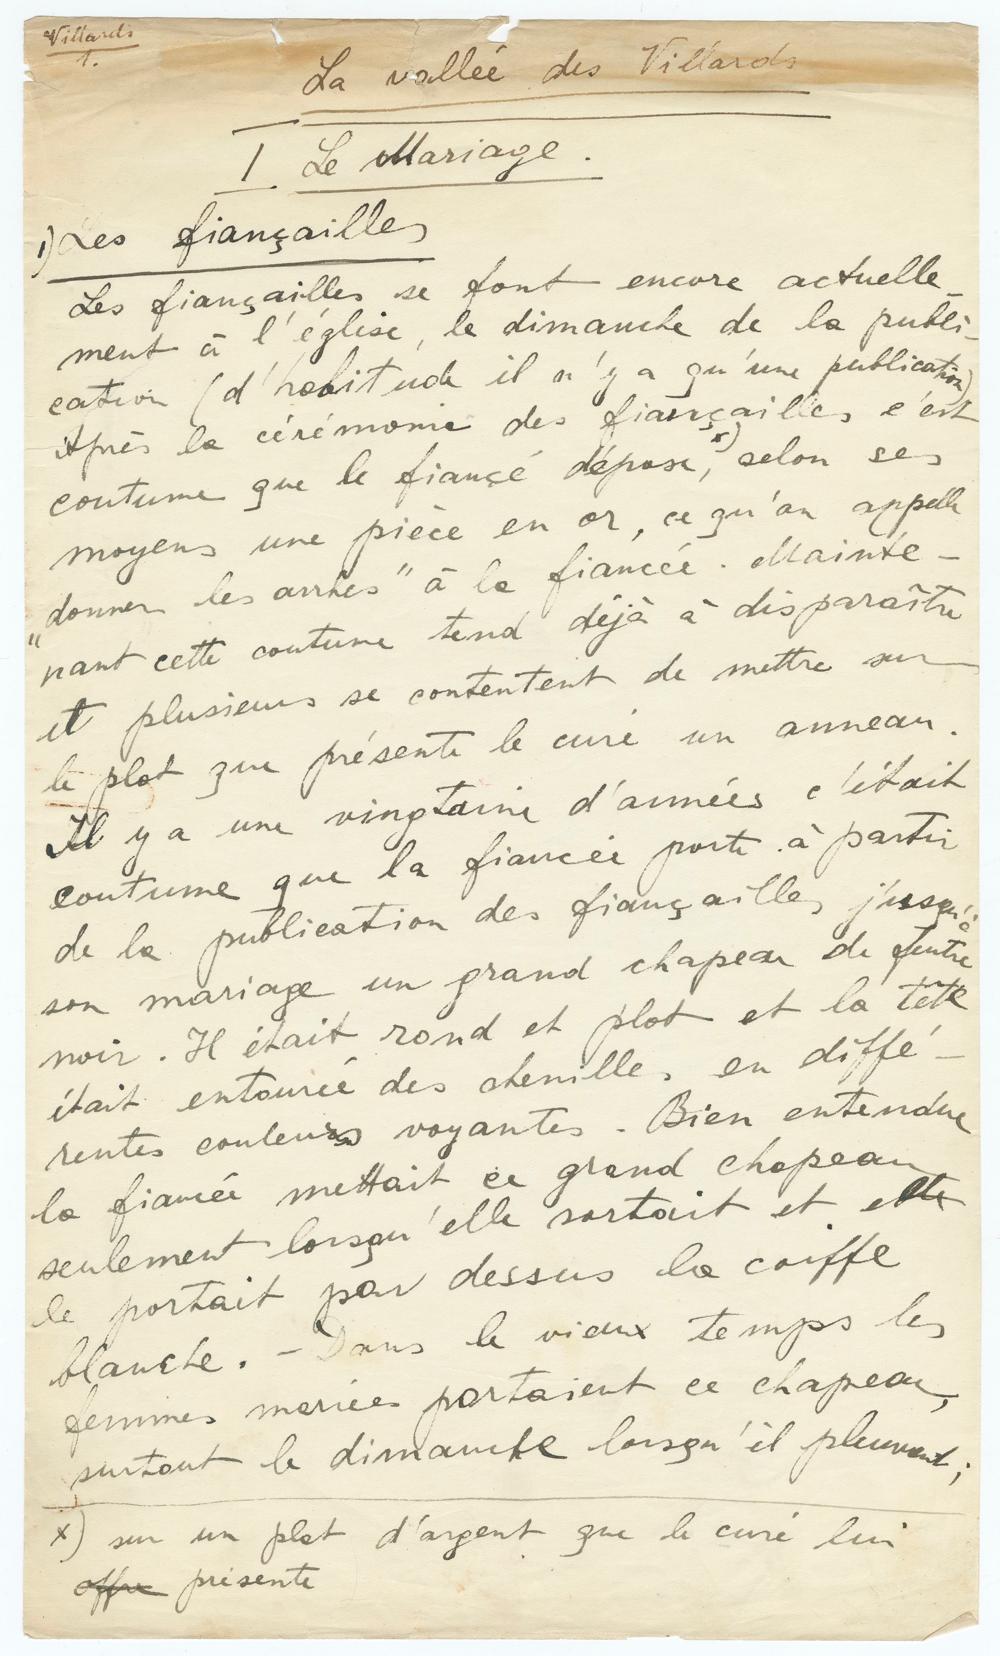 Villards
1.
La vallée des Villards
I Le Mariage.
1) Les fiançailles
Les fiançailles se font encore actuelle-
ment à l'église, le dimanche de la publi-
cation (d'habitude il n'y a qu'une publication)
Après la cérémonie des fiançailles c'est
coutume que le fiancé dépose,x) selon ses
moyens une pièce en or, ce qu'on appelle
"donner les arrhes" à la fiancée. Mainte-
nant cette coutume tend déjà à disparaître
et plusieurs se contentent de mettre sur
le plat que présente le curé un anneau.
Il y a une vingtaine d'années c'était
coutume que la fiancée porte à partir
de la publication des fiançailles jusqu'à
son mariage un grand chapeau de feutre
noir. Il était rond et plat et la tête
était entourée des chenilles en diffé-
rentes couleurs voyantes. Bien entendue
la fiancée mettait ce grand chapeau
seulement lorsqu'elle sortait et elle
le portait par dessus la coiffe
blanche. - Dans le vieux temps les
femmes mariées portaient ce chapeau,
surtout le dimanche lorsqu'il pleuvait;
x) sur un plat d'argent que le curé lui
offre présente